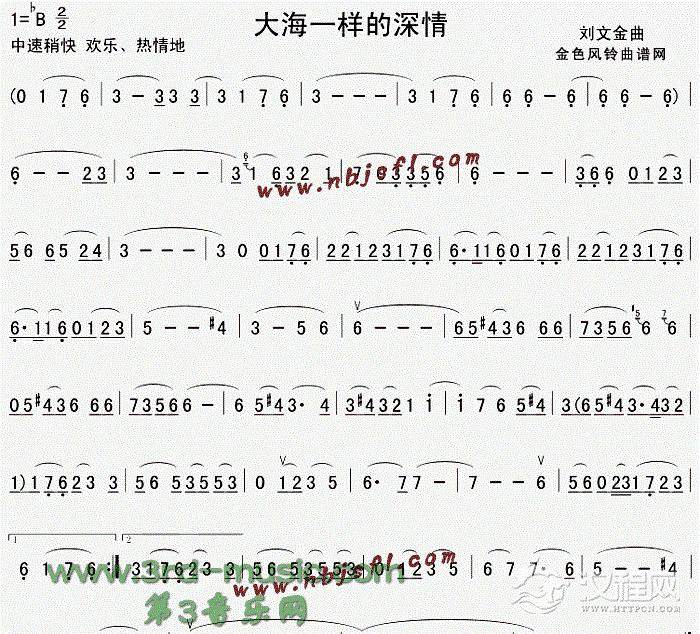 1=♭B 2/2
大海一样的深情
刘文金曲
中速稍快 欢乐、热情地
金色风铃曲谱网
(0 1 7 6 | 3 - 3 3 3 | 3 1 7 6 | 3 - - - | 3 1 7 6 | 6 6 - 6 | 6 - - 6) |
6 - - 2 3 | 3 - - - | 3 1 6 3 2 1 | 7 0 3 3 5 6 | 6 - - - | 3 6 6 0 1 2 3 |
www.nbjsfl.com
5 6 6 5 2 4 | 3 - - - | 3 0 0 1 7 6 | 2 2 1 2 3 1 7 6 | 6· 1 1 6 0 1 7 6 | 2 2 1 2 3 1 7 6 |
6· 1 1 6 0 1 2 3 | 5 - - #4 | 3 - 5 6 | 6 - - - | 6 5 #4 3 6 6 6 | 7 3 5 6 6 6 |
0 5 #4 3 6 6 6 | 7 3 5 6 6 6 - | 6 5 #4 3· 4 | 3 #4 3 2 1 i | i 7 6 5 #4 | 3 (6 5 #4 3· 4 3 2 |
1) 1 7 6 2 3 3 | 5 6 5 3 5 5 3 | 0 1 2 3 5 | 6· 7 7 - | 7 - - 6 | 5 6 0 2 3 1 7 2 3 |
1 2
6 1 7 6 :| 3 1 7 6 2 3 3 | 5 6 5 5 3 5 5 3 | 0 1 2 3 5 | 6 7 7· 6 | 5 - - #4 |
www.3rd-music.com
www.nbjsfl.com
第3音乐网
汉程网
WWW.HTTPCN.COM